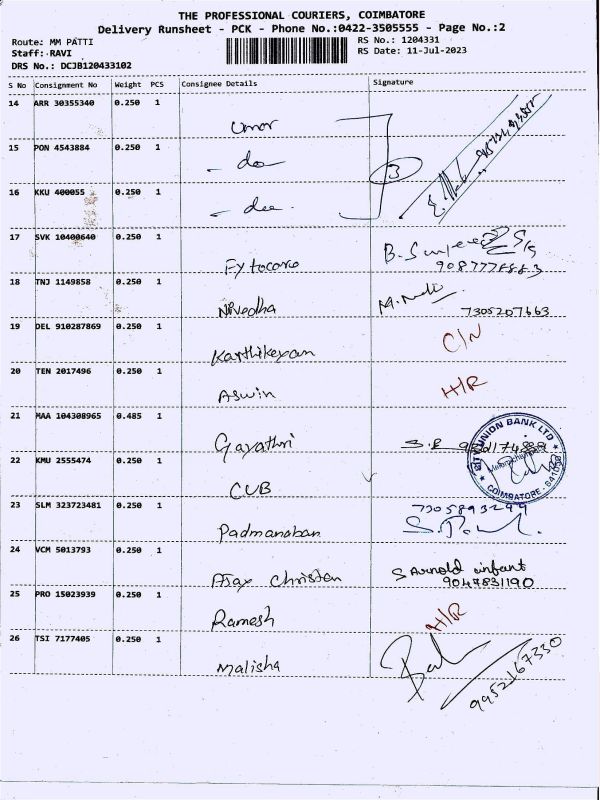 THE PROFESSIONAL COURIERS, COIMBATORE
Delivery Runsheet - PCK - Phone No.:0422-3505555 - Page No.:2
Route: MM PATTI
Staff: RAVI
DRS No.: DCJB120433102
RS No.: 1204331
RS Date: 11-Jul-2023
S No Consignment No Weight PCS Consignee Details Signature
14 ARR 30355340 0.250 1 Umar
15 PON 4543884 0.250 1 - do
16 KKU 400055 0.250 1 - do
3
17 SVK 10400640 0.250 1 Fytocare
18 TNJ 1149858 0.250 1 Nivedha 7305207663
19 DEL 910287869 0.250 1 Karthikeyan C/N
20 TEN 2017496 0.250 1 Aswin H/R
21 MAA 104308965 0.485 1 Gayathri
22 KMU 2555474 0.250 1 CUB
CITY UNION BANK LTD
COIMBATORE -
23 SLM 323723481 0.250 1 Padmanaban 7305893299
24 VCM 5013793 0.250 1 Ajax Christen S Arnold infant
9047831190
25 PRO 15023939 0.250 1 Ramesh H/R
26 TSI 7177405 0.250 1 Malisha 9952167330